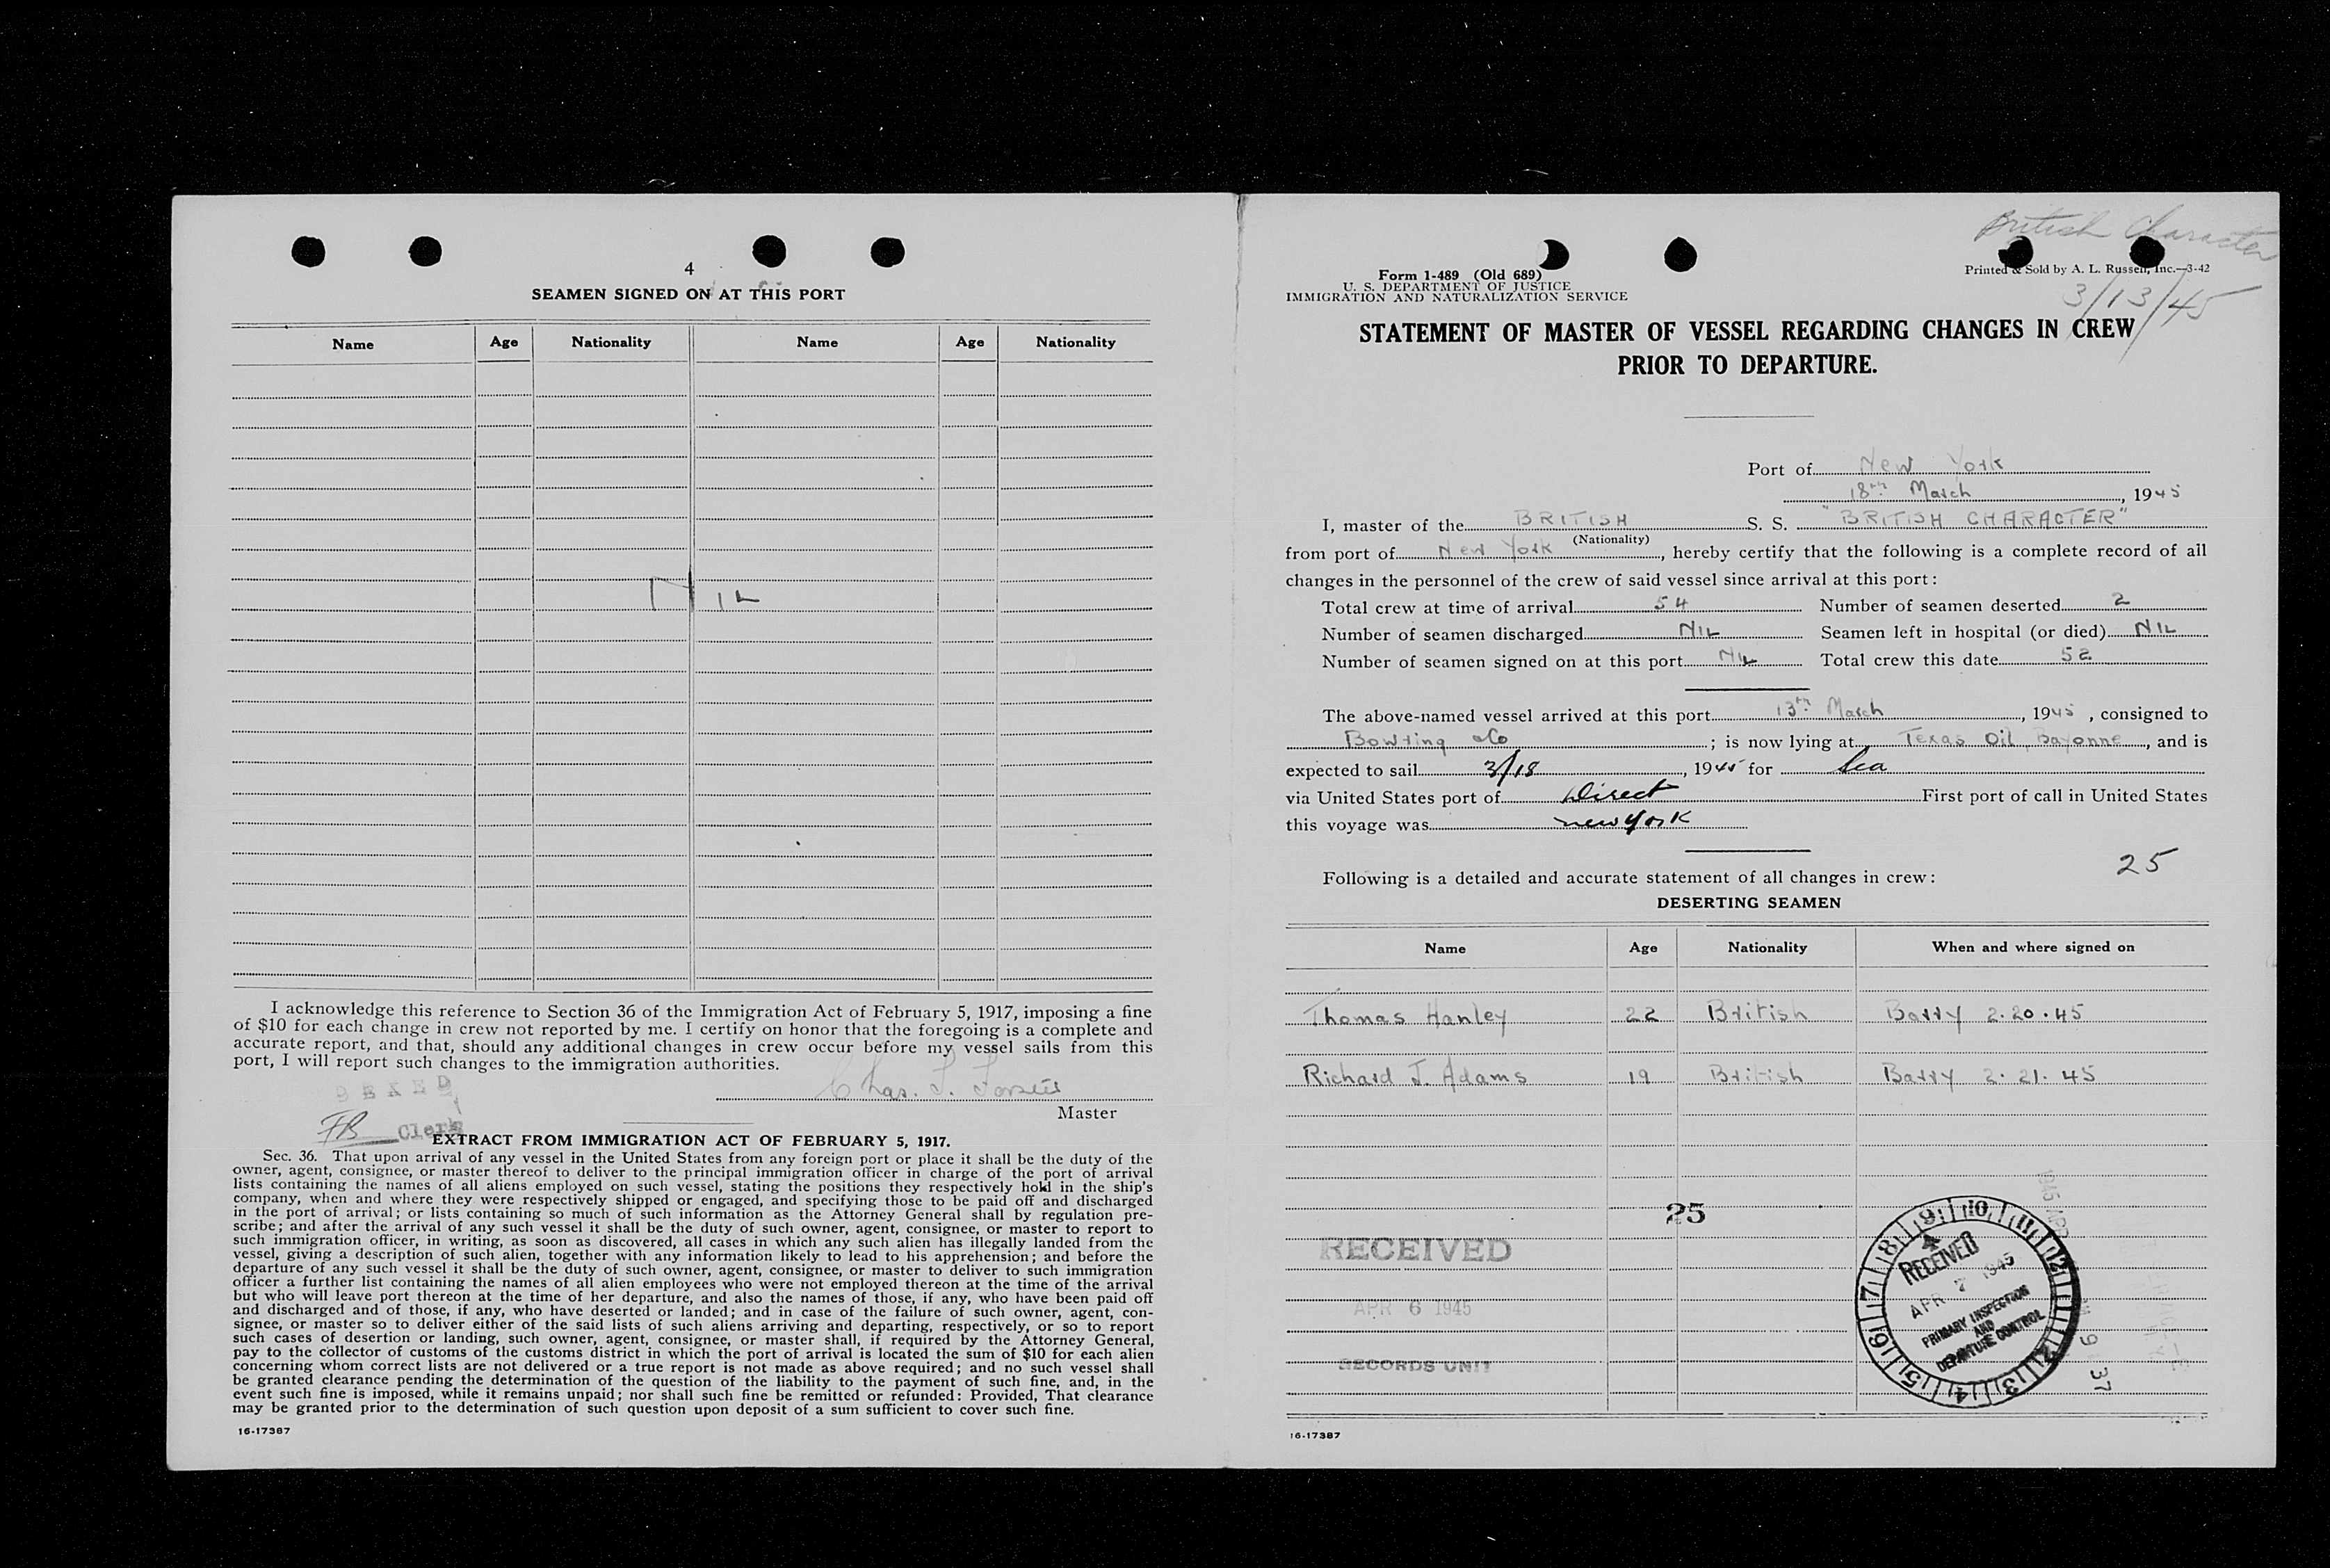 4
SEAMEN SIGNED ON AT THIS PORT
Name Age Nationality Name Age Nationality
NIL
I acknowledge this reference to Section 36 of the Immigration Act of February 5, 1917, imposing a fine
of $10 for each change in crew not reported by me. I certify on honor that the foregoing is a complete and
accurate report, and that, should any additional changes in crew occur before my vessel sails from this
port, I will report such changes to the immigration authorities.
Chas. 
Master
FB Clerk
EXTRACT FROM IMMIGRATION ACT OF FEBRUARY 5, 1917.
Sec. 36. That upon arrival of any vessel in the United States from any foreign port or place it shall be the duty of the
owner, agent, consignee, or master thereof to deliver to the principal immigration officer in charge of the port of arrival
lists containing the names of all aliens employed on such vessel, stating the positions they respectively hold in the ship's
company, when and where they were respectively shipped or engaged, and specifying those to be paid off and discharged
in the port of arrival; or lists containing so much of such information as the Attorney General shall by regulation pre-
scribe; and after the arrival of any such vessel it shall be the duty of such owner, agent, consignee, or master to report to
such immigration officer, in writing, as soon as discovered, all cases in which any such alien has illegally landed from the
vessel, giving a description of such alien, together with any information likely to lead to his apprehension; and before the
departure of any such vessel it shall be the duty of such owner, agent, consignee, or master to deliver to such immigration
officer a further list containing the names of all alien employees who were not employed thereon at the time of the arrival
but who will leave port thereon at the time of her departure, and also the names of those, if any, who have been paid off
and discharged and of those, if any, who have deserted or landed; and in case of the failure of such owner, agent, con-
signee, or master so to deliver either of the said lists of such aliens arriving and departing, respectively, or so to report
such cases of desertion or landing, such owner, agent, consignee, or master shall, if required by the Attorney General,
pay to the collector of customs of the customs district in which the port of arrival is located the sum of $10 for each alien
concerning whom correct lists are not delivered or a true report is not made as above required; and no such vessel shall
be granted clearance pending the determination of the question of the liability to the payment of such fine, and, in the
event such fine is imposed, while it remains unpaid; nor shall such fine be remitted or refunded: Provided, That clearance
may be granted prior to the determination of such question upon deposit of a sum sufficient to cover such fine.
16-17387
British Character
3/13/45
Form 1-489 (Old 689)
U. S. DEPARTMENT OF JUSTICE
IMMIGRATION AND NATURALIZATION SERVICE
Printed & Sold by A. L. Russell, Inc.—3-42
STATEMENT OF MASTER OF VESSEL REGARDING CHANGES IN CREW
PRIOR TO DEPARTURE.
Port of New York
18th March, 1945
I, master of the BRITISH S. S. "BRITISH CHARACTER"
(Nationality)
from port of New York, hereby certify that the following is a complete record of all
changes in the personnel of the crew of said vessel since arrival at this port:
Total crew at time of arrival 54 Number of seamen deserted 2
Number of seamen discharged NIL Seamen left in hospital (or died) NIL
Number of seamen signed on at this port NIL Total crew this date 52
The above-named vessel arrived at this port 13th March, 1945, consigned to
Bowring & Co; is now lying at Texas Oil, Bayonne, and is
expected to sail 3/18, 1945 for Sea
via United States port of Direct First port of call in United States
this voyage was new york
25
Following is a detailed and accurate statement of all changes in crew:
DESERTING SEAMEN
Name Age Nationality When and where signed on
Thomas Hanley 22 British Barry 2.20.45
Richard J. Adams 19 British Barry 2.21.45
25
RECEIVED
APR 6 1945
RECORDS UNIT
7 8 9 10 11 12
RECEIVED
APR 7 1945
PRIMARY INSPECTION
AND
DEPARTURE CONTROL
6 5 4 3 2
1945 APR
9 37
16-17387